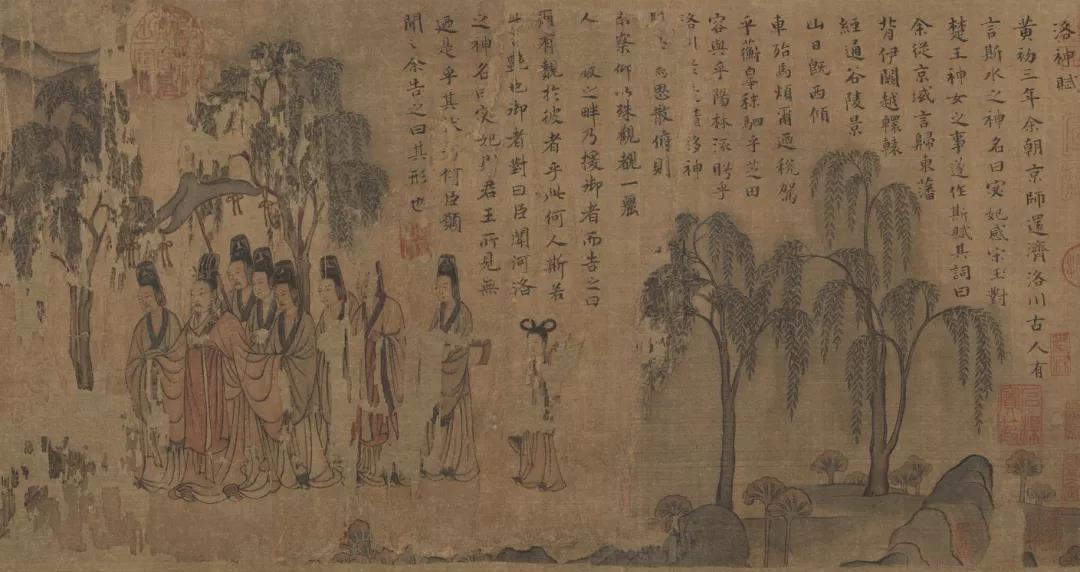 洛神賦
黄初三年余朝京師還濟洛川古人有
言斯水之神名曰宓妃感宋玉對
楚王神女之事遂作斯賦其詞曰
余從京域言歸東藩
背伊闕越轘轅
經通谷陵景
山日既西傾
車殆馬煩爾迺税駕
乎蘅皋秣駟乎芝田
容與乎陽林流眄乎
洛川於是精移神
思散俯則
未察仰以殊觀覩一麗
人之畔乃援御者而告之曰
爾有覿於彼者乎此何人斯若
此艷也御者對曰臣聞河洛
之神名曰宓妃則君王所見無
迺是乎其狀何臣願
聞之余告之曰其形也